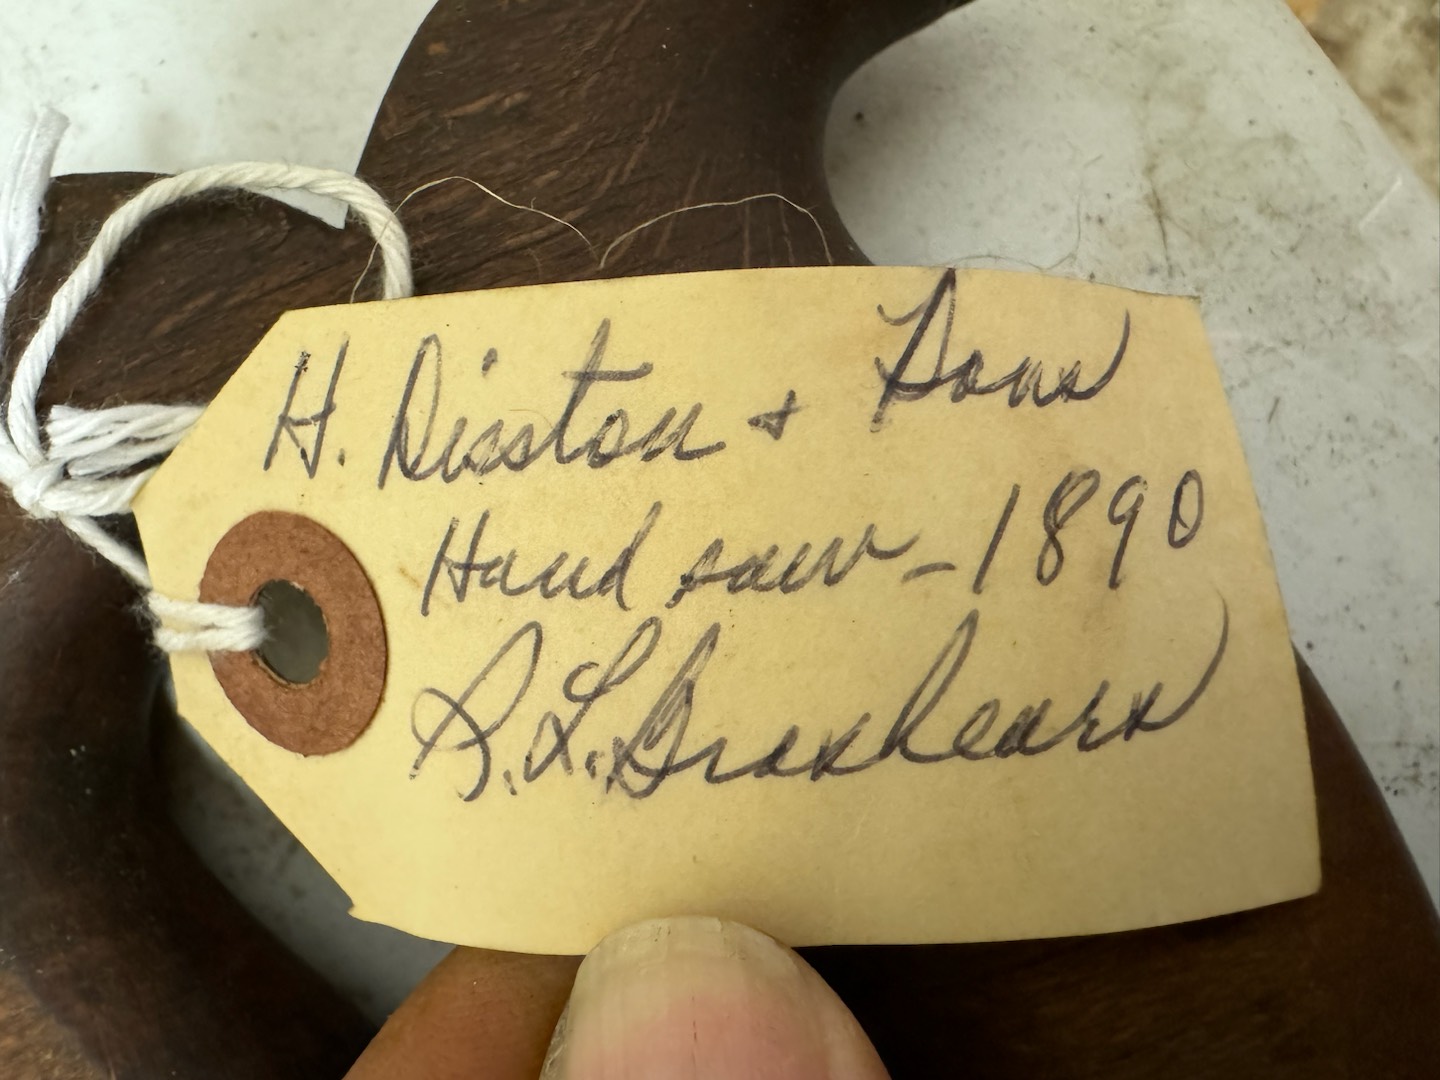 H. Disston + Sons
Hand saw - 1890
S. L. Brashears